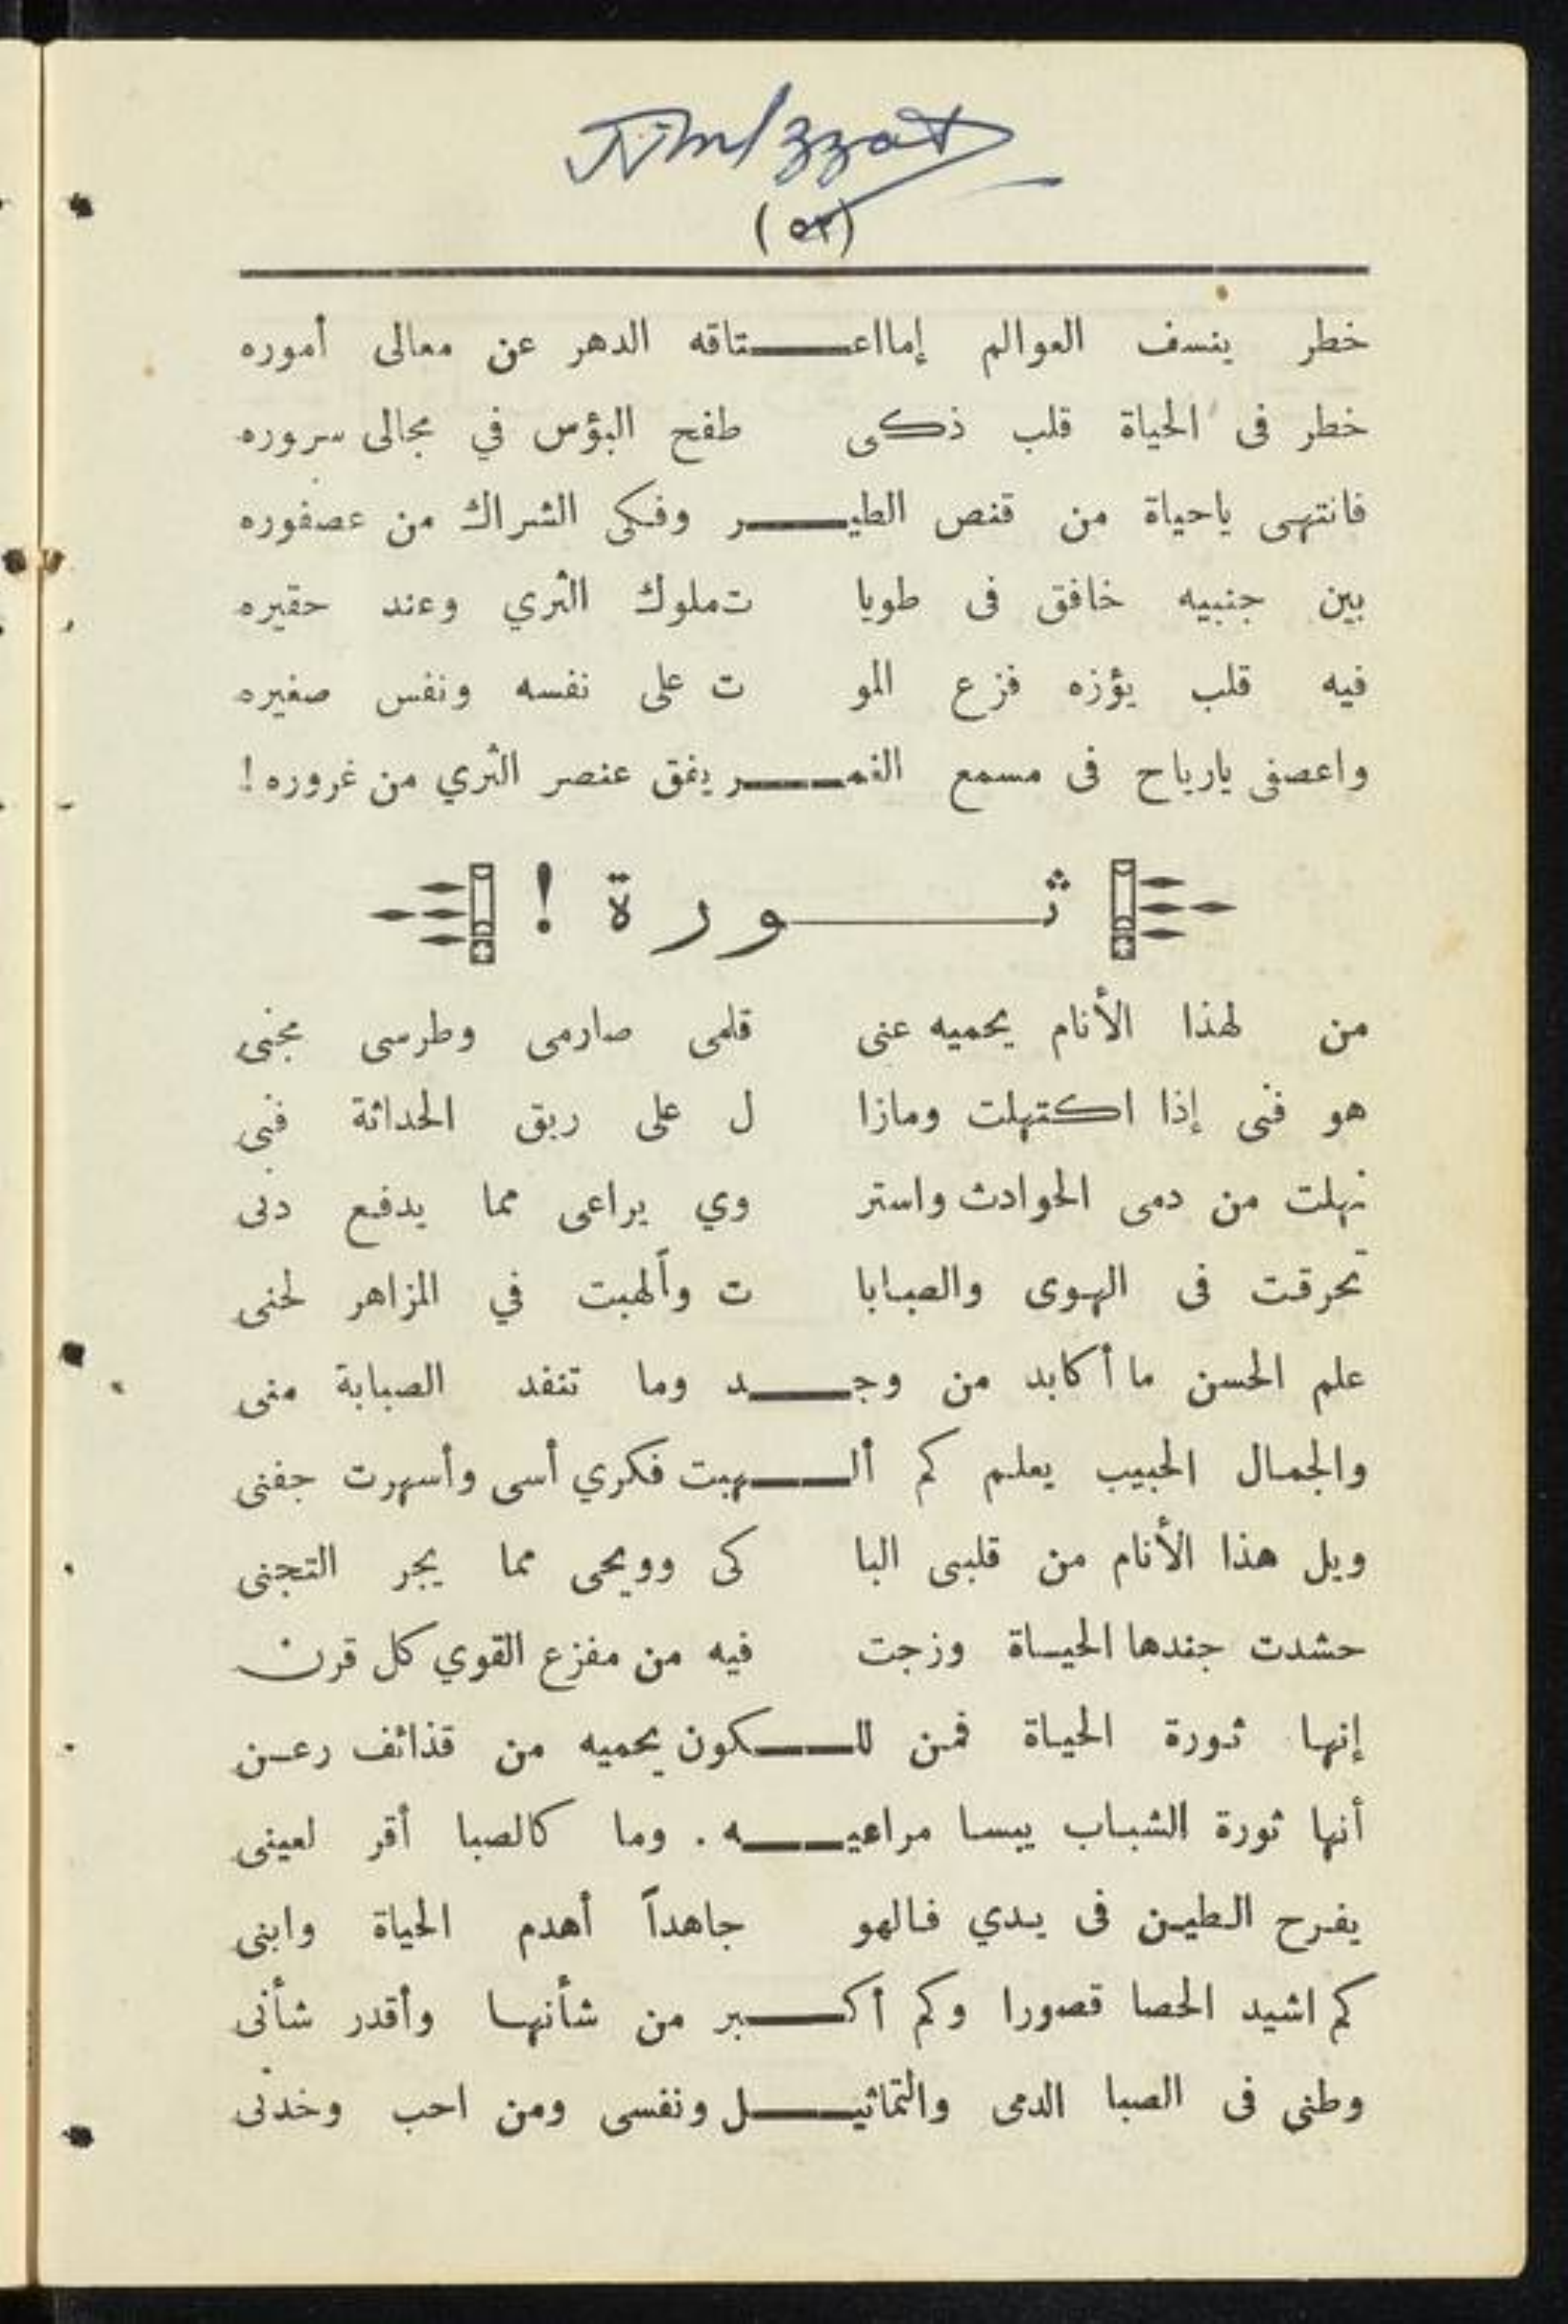 (٥٣)
خطر ينسف العوالم إمااعـــتاقه الدهر عن معالى أموره
خطر فى الحياة قلب ذكى طفح البؤس في مجالى سروره
فانتهى ياحياة من قنص الطيـــر وفكى الشراك من عصفوره
بين جنبيه خافق فى طويا ت ملوك الثري وعند حقيره
فيه قلب يؤزه فزع المو ت على نفسه ونفس صغيره
واعصفى يارياح فى مسمع الغمـــر يفق عنصر الثري من غروره !
ثـــورة !
من لهذا الأنام يحميه عنى قلمى صارمى وطرسى مجنى
هو فنى إذا اكتهلت ومازا ل على ريق الحداثة فنى
نهلت من دمى الحوادث واستر وي يراعى مما يدفع دنى
تحرقت فى الهوى والصبابا ت وألهبت في المزاهر لحنى
علم الحسن ما أكابد من وجـــد وما تنفد الصبابة منى
والجمال الحبيب يعلم كم ألـــهبت فكري أسى وأسهرت جفنى
ويل هذا الأنام من قلبى البا كى وويحى مما يجر التجنى
حشدت جندها الحياة وزجت فيه من مفزع القوي كل قرن
إنها ثورة الحياة فمن للـــكون يحميه من قذائف رعن
أنها ثورة الشباب يبسا مراعيـــه . وما كالصبا أقر لعينى
يفرح الطين فى يدي فالهو جاهداً أهدم الحياة وابنى
كم اشيد الحصا قصورا وكم أكـــبر من شأنها وأقدر شأنى
وطنى فى الصبا الدمى والتماثيـــل ونفسى ومن احب وخدنى